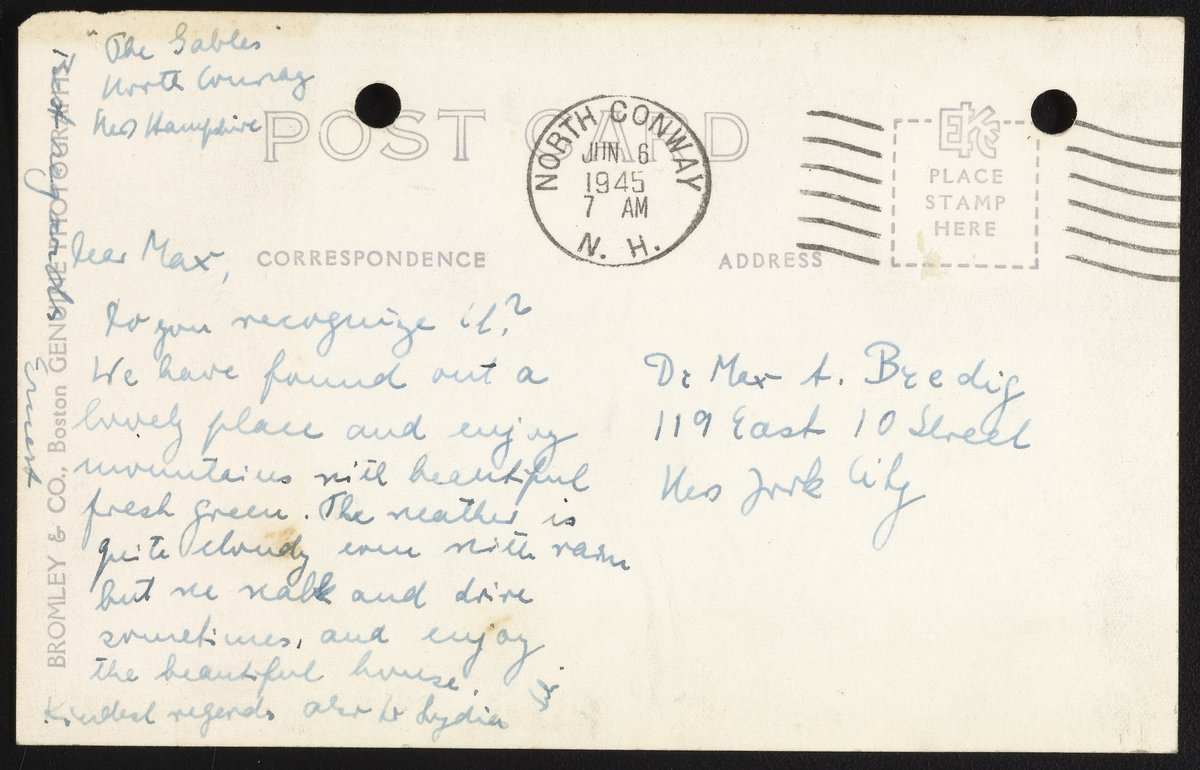 "The Gables"
North Conway
New Hampshire
POST CARD
NORTH CONWAY
JUN 6
1945
7 AM
N. H.
PLACE
STAMP
HERE
CORRESPONDENCE
ADDRESS
Dear Max,
Do you recognize it?
We have found out a
lovely place and enjoy
mountains with beautiful
fresh green. The weather is
quite cloudy even with rain
but we walk and drive
sometimes, and enjoy
the beautiful house.
Kindest regards also to Lydia
Dr Max A. Bredig
119 East 10 Street
New York City
BROMLEY & CO., Boston GENUINE PHOTOGRAPHS